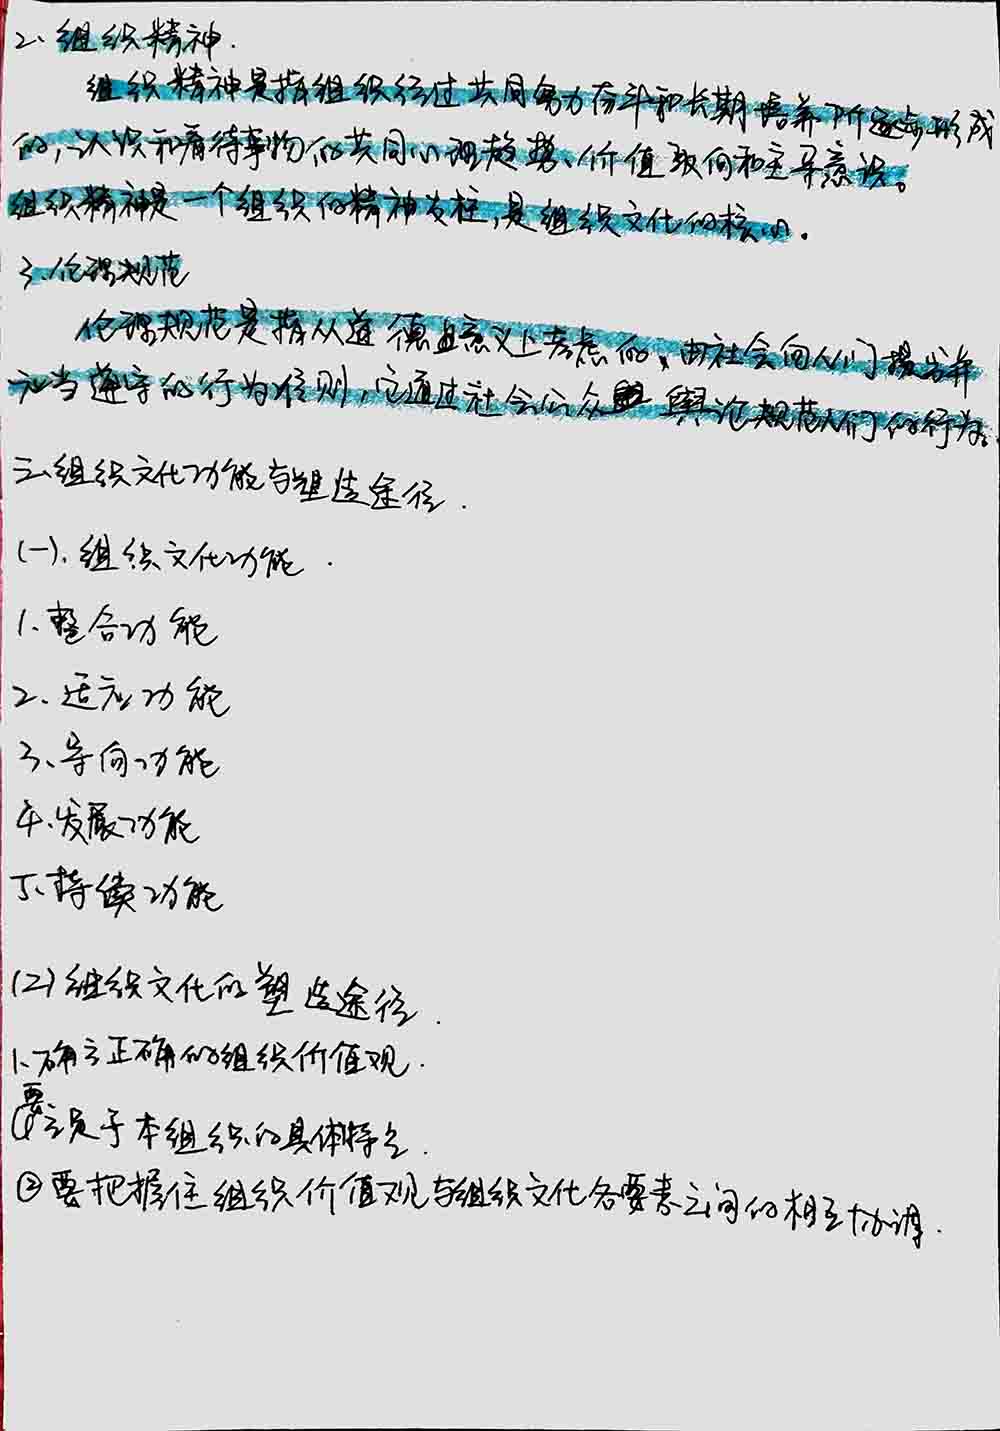 2、组织精神.
组织精神是指组织经过共同努力奋斗和长期培养所逐步形成
的，认识和看待事物的共同心理趋势、价值取向和主导意识。
组织精神是一个组织的精神支柱，是组织文化的核心.
3、伦理规范
伦理规范是指从道德意义上考虑的、由社会向人们提出并
应当遵守的行为准则，它通过社会公众舆论规范人们的行为。
三、组织文化功能与塑造途径.
(一)、组织文化功能.
1、整合功能
2、适应功能
3、导向功能
4、发展功能
5、持续功能
(2)组织文化的塑造途径.
1、确立正确的组织价值观.
①要立足于本组织的具体特点.
②要把握住组织价值观与组织文化各要素之间的相互协调.